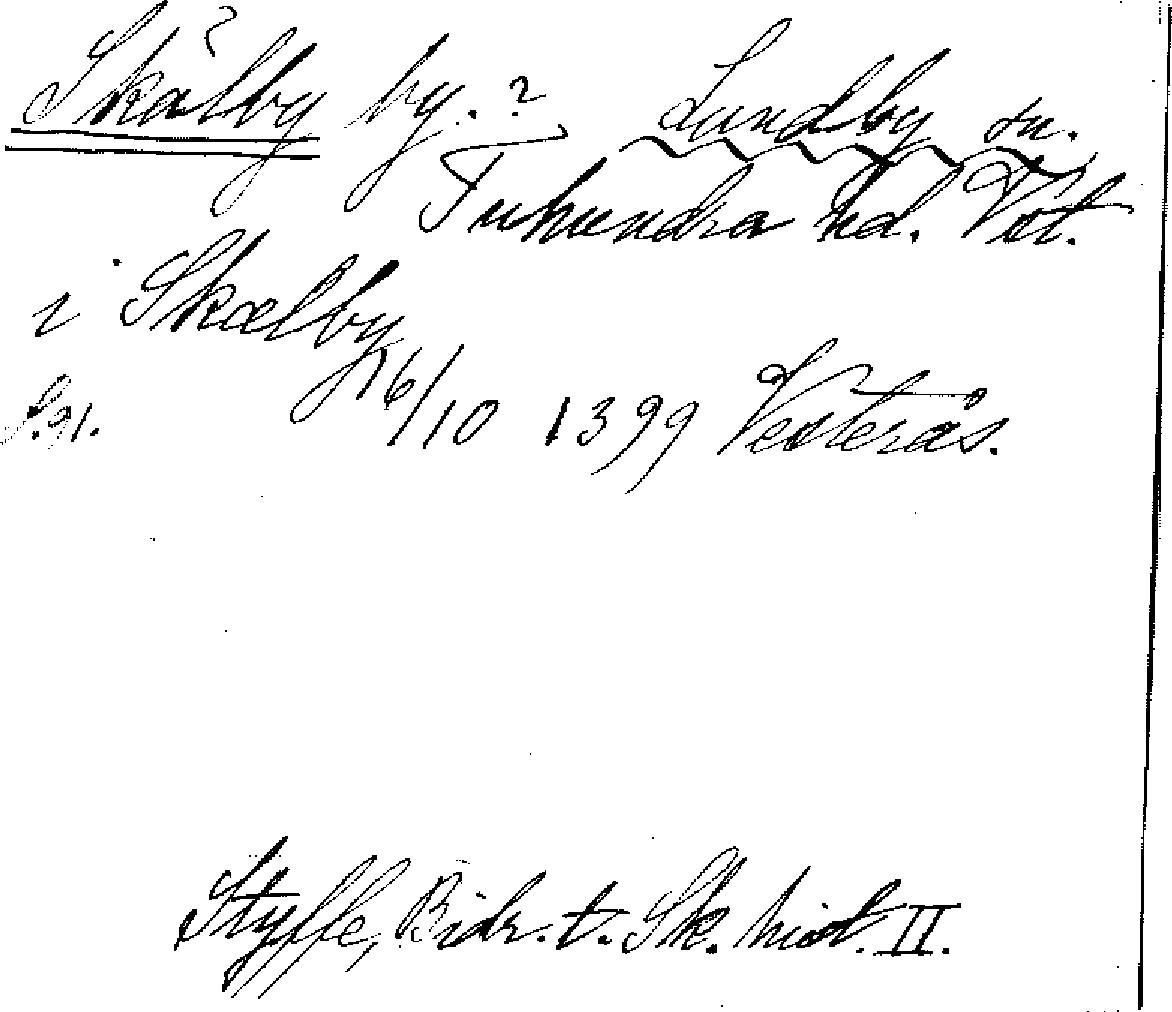 Skälby by. ? Lundby sn.
Tuhundra hd. Vst.
i Skælby
S. 91. 16/10 1399 Vesterås.
Styffe, Bidr. t. Sk. hist. II.